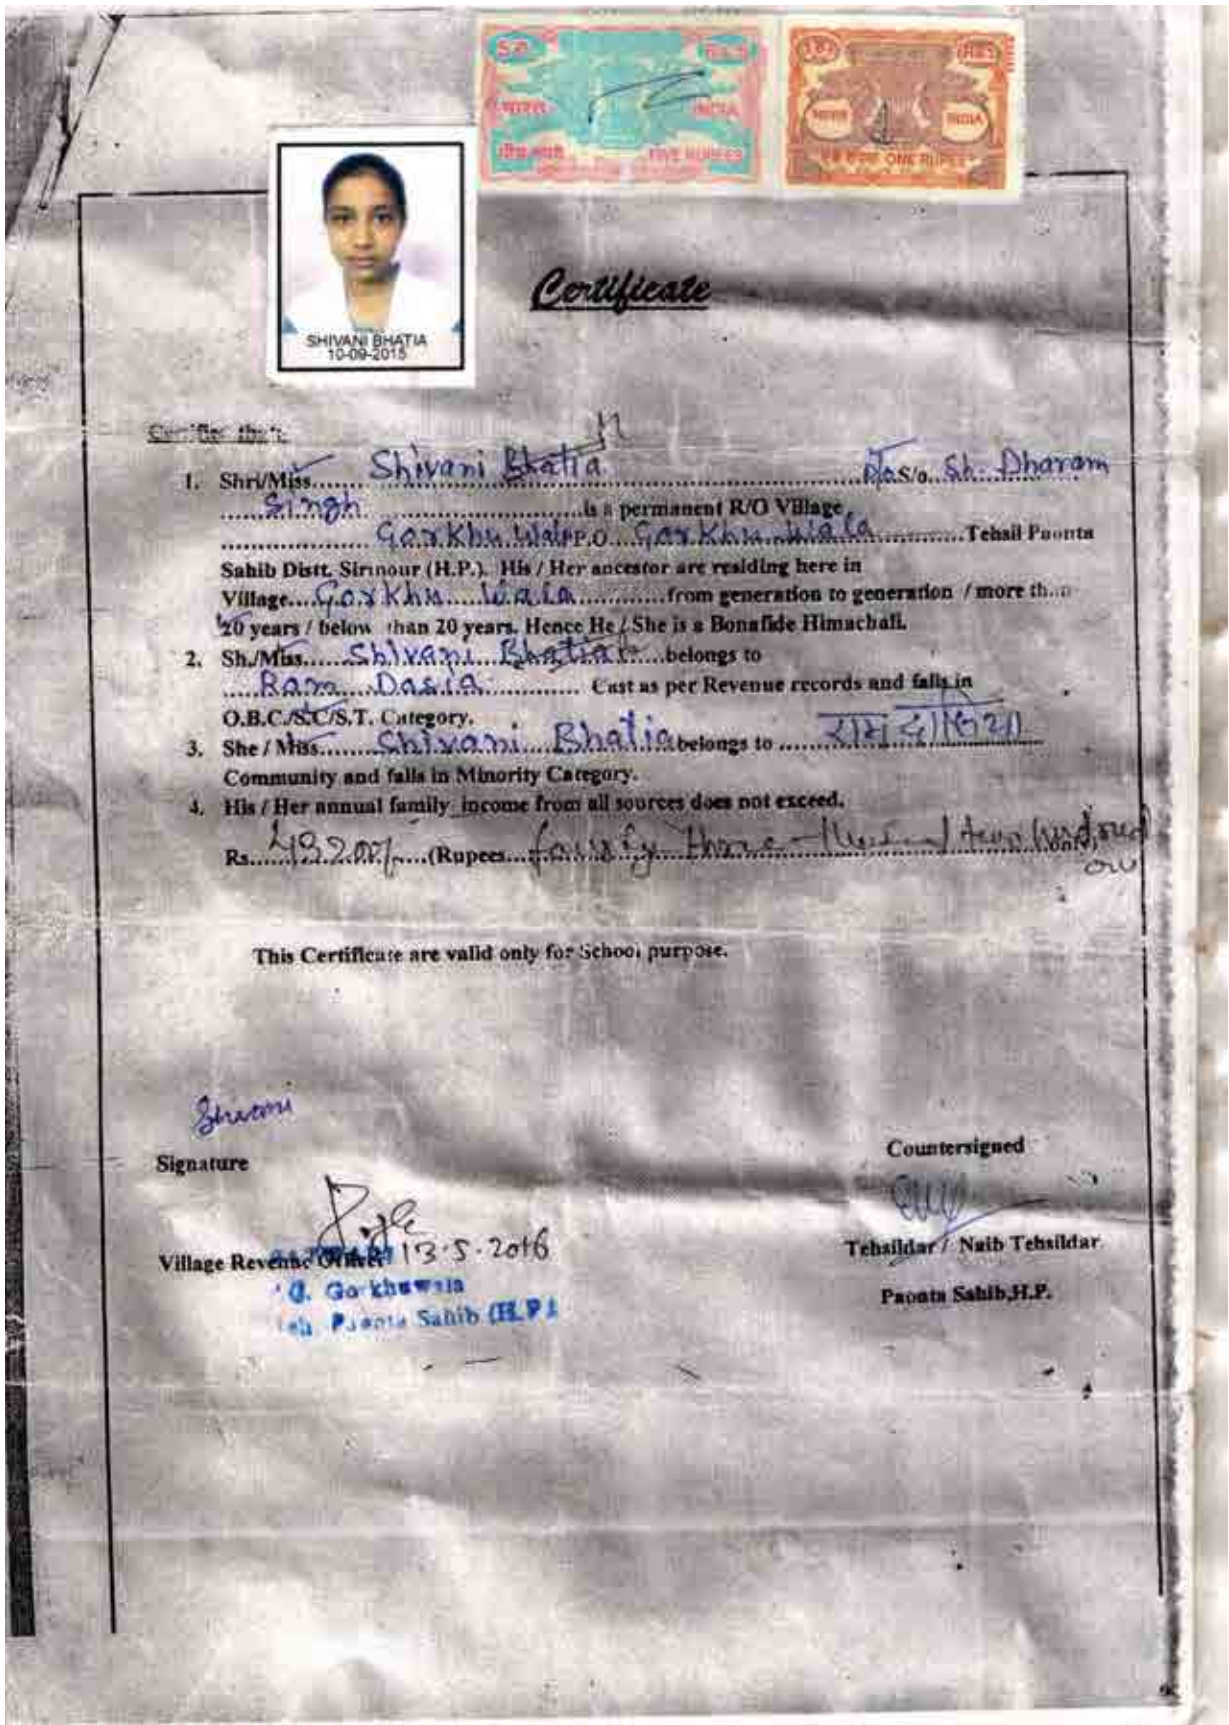 5 रु RS.5
भारत INDIA
FIVE RUPEES
1 रु RE.1
भारत INDIA
एक रुपया ONE RUPEE
SHIVANI BHATIA
10-09-2015
Certificate
Certifies that:
1. Shri/Miss...... Shivani Bhatia D/o S/o. Sh. Dharam
Singh is a permanent R/O Village
Gorkhu Wala P.O. Gorkhu Wala Tehsil Paonta
Sahib Distt. Sirmour (H.P.). His / Her ancestor are residing here in
Village....Gorkhu Wala............from generation to generation / more than
20 years / below than 20 years. Hence He / She is a Bonafide Himachali.
2. Sh./Miss...... Shivani Bhatia belongs to
Ram Dasia Cast as per Revenue records and falls in
O.B.C./S.C/S.T. Category.
3. She / Miss........ Shivani Bhatia belongs to ...... रामदासिया
Community and falls in Minority Category.
4. His / Her annual family income from all sources does not exceed.
Rs....43200/-....(Rupees... hundred
only
This Certificate are valid only for School purpose.
Shivani
Signature
Countersigned
Village Revenue Officer 13-5-2016
Tehsildar / Naib Tehsildar
Gorkhuwala
Paonta Sahib,H.P.
Teh. Paonta Sahib (H.P.)